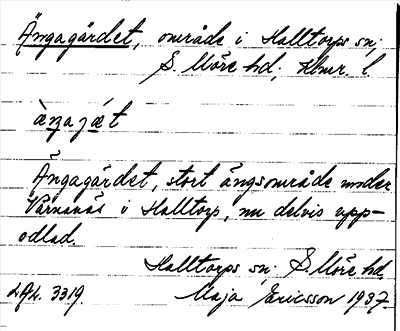 Ängagärdet, område i Halltorps sn;
S. Möre hd; Klmr. l.
Ängagärdet, stort ängsområde under
Värnanäs i Halltorp, nu delvis upp-
odlad.
Halltorps sn; S. Möre hd.
3319. Maja Ericsson 1937.